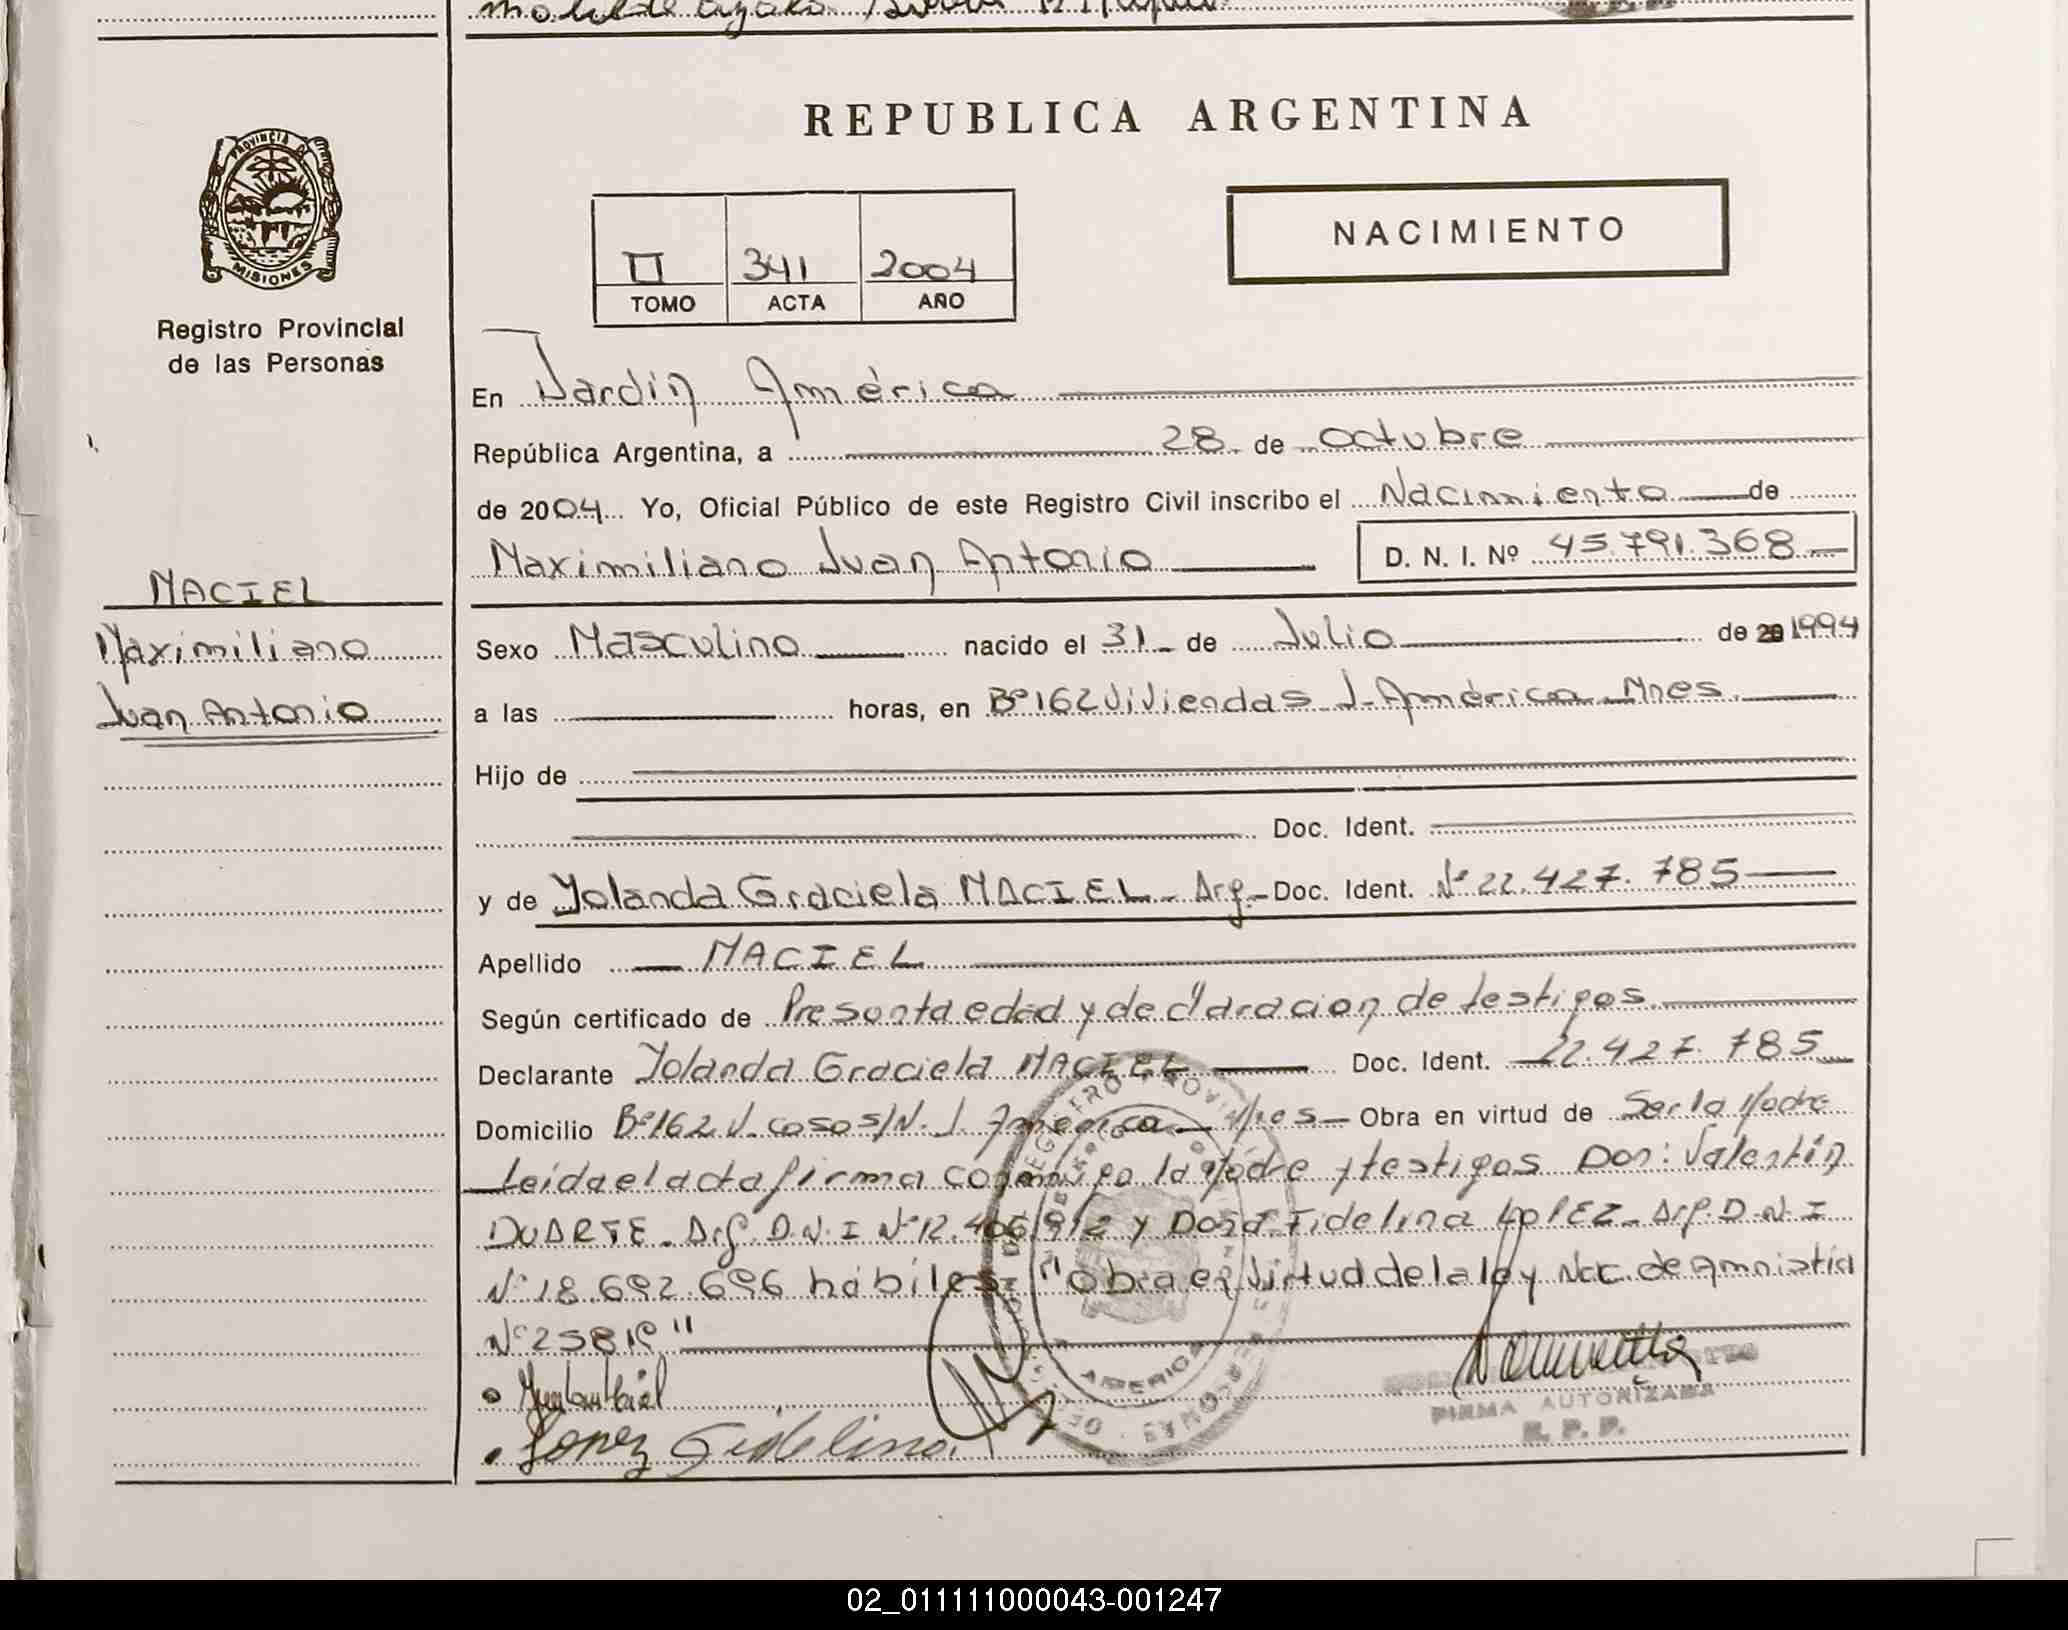 PROVINCIA DE
MISIONES
Registro Provincial
de las Personas
MACIEL
Maximiliano
Juan Antonio
REPUBLICA ARGENTINA
NACIMIENTO
II 341 2004
TOMO ACTA AÑO
En Jardín América
República Argentina, a 28 de octubre
de 2004 Yo, Oficial Público de este Registro Civil inscribo el Nacimiento de
Maximiliano Juan Antonio D. N. I. Nº 45.791.368
Sexo Masculino nacido el 31 de Julio de 20 1994
a las horas, en Bº 162 Viviendas J. América Mnes.
Hijo de
Doc. Ident.
y de Yolanda Graciela MACIEL - Arg- Doc. Ident. Nº 22.427.785
Apellido MACIEL
Según certificado de Presonta edad y declaracion de testigos.
Declarante Yolanda Graciela MACIEL Doc. Ident. 22.427.785
Domicilio Bº 162 V. casa s/N. J. América Mnes - Obra en virtud de Ser la Madre
Leida el acta firma conmigo la Madre y testigos Don: Valentín
DUARTE. Arg. D.N.I Nº 12.406.912 y Doña Fidelina LOPEZ. Arg. D.N.I
Nº 18.692.696 hábiles "Obra en Virtud de la ley Nac. de Amnistia
Nº 25819"
Lopez Fidelina
FIRMA AUTORIZADA
R. P. P.
02_011111000043-001247